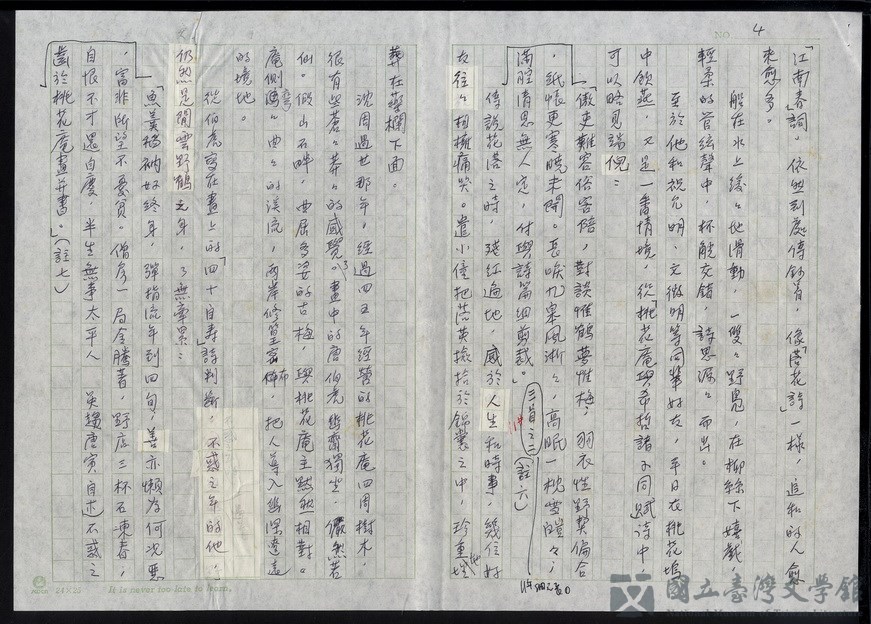 4
NO
「江南春」詞，依然到處傳鈔着，像「落花詩」一樣，追和的人愈
來愈多。
船在水上緩々地滑動，一雙々野鳧，在柳絲下嬉戲，
輕柔的管絃聲中，杯觥交錯，詩思泪々而出。
至於他和祝允明、文徵明等同輩好友，平日在桃花塢
中飲燕，又是一番情境，從「桃花庵與希哲諸子同賦」詩中，
可以略見端倪：
「傲吏難容俗客陪，對談惟鶴夢惟梅，羽衣性野契偏合
，紙帳更寒曉未開。長唳九皋風淅々，高眠一枕雪皚々，
滿腔清思無人定，付與詩篇細剪裁。」
三首之二（註六）
傳說花落之時，殘紅遍地，感於人生和時事，幾位好
友往々相擁痛哭。遣小僮把落英撿拾於錦囊之中，珍重地
葬在藥欄下面。
沈周過世那年，經過四五年經營的桃花庵四周樹木，
很有些蒼々莽々的感覺了。畫中的唐伯虎幽齋獨坐，儼然若
仙。假山石畔，曲屈多姿的古梅，與桃花庵主默然相對。
庵側彎々曲々的溪流，兩岸修篁密佈，把人導入幽深邃遠
的境地。
從伯虎寫在畫上的「四十自壽」詩判斷，不惑之年的他，
仍然是閒雲野鶴之身，了無牽累：
「魚羹稻衲好終身，彈指流年到四旬，善亦懶為何況惡
，富非所望不憂貧。僧房一局金騰著，野店三杯石凍春，
自恨不才還自慶，半生無事太平人　吳趨唐寅自述不惑之
齒於桃花庵畫并書。」（註七）
24×25
It is never too late to learn.
國立臺灣文學館